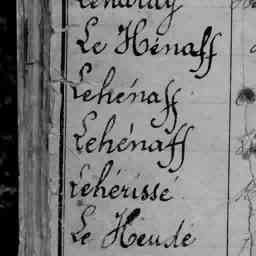 Le Hénaff
Lehénaff
Lehénaff
Lehérissé
Le Heudé